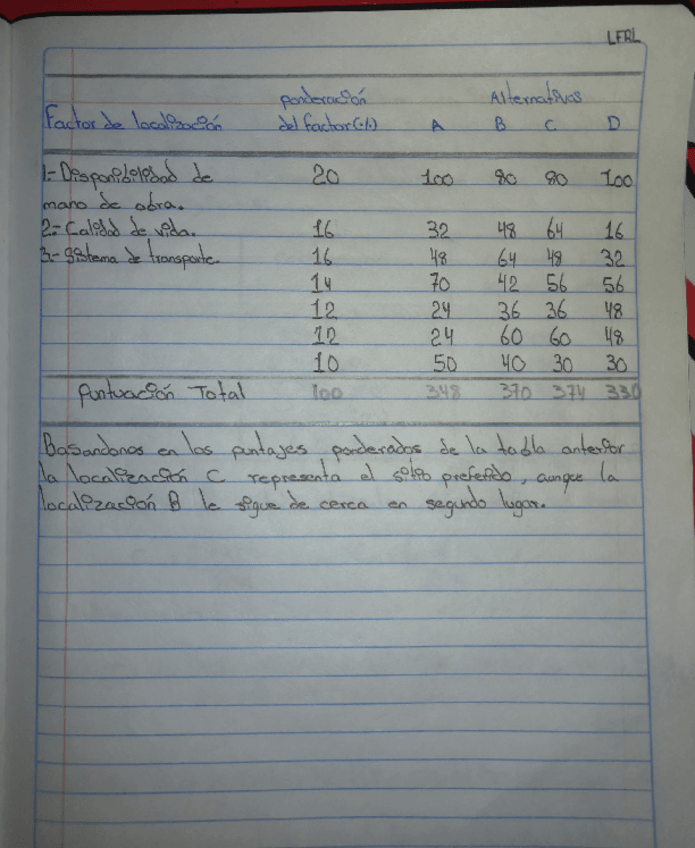 LFBL
ponderación Alternativas
Factor de localización del factor(%) A B C D
1.- Disponibilidad de 20 100 80 80 100
mano de obra.
2.- Calidad de vida. 16 32 48 64 16
3.- Sistema de transporte. 16 48 64 48 32
14 70 42 56 56
12 24 36 36 48
12 24 60 60 48
10 50 40 30 30
Puntuación Total 100 348 370 374 330
Basandonos en los puntajes ponderados de la tabla anterior
la localización C representa el sitio preferido, aunque la
localización B le sigue de cerca en segundo lugar.